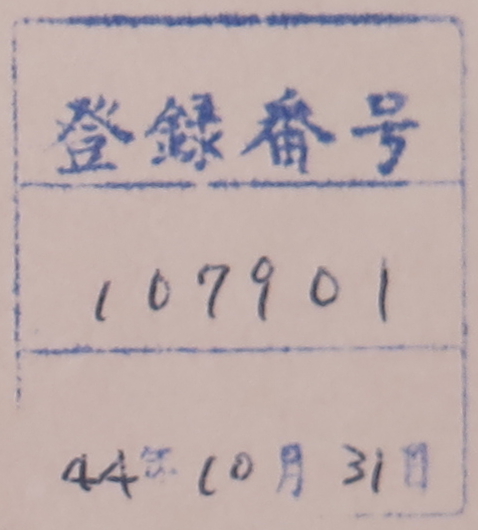 登録番号
107901
44年10月31日